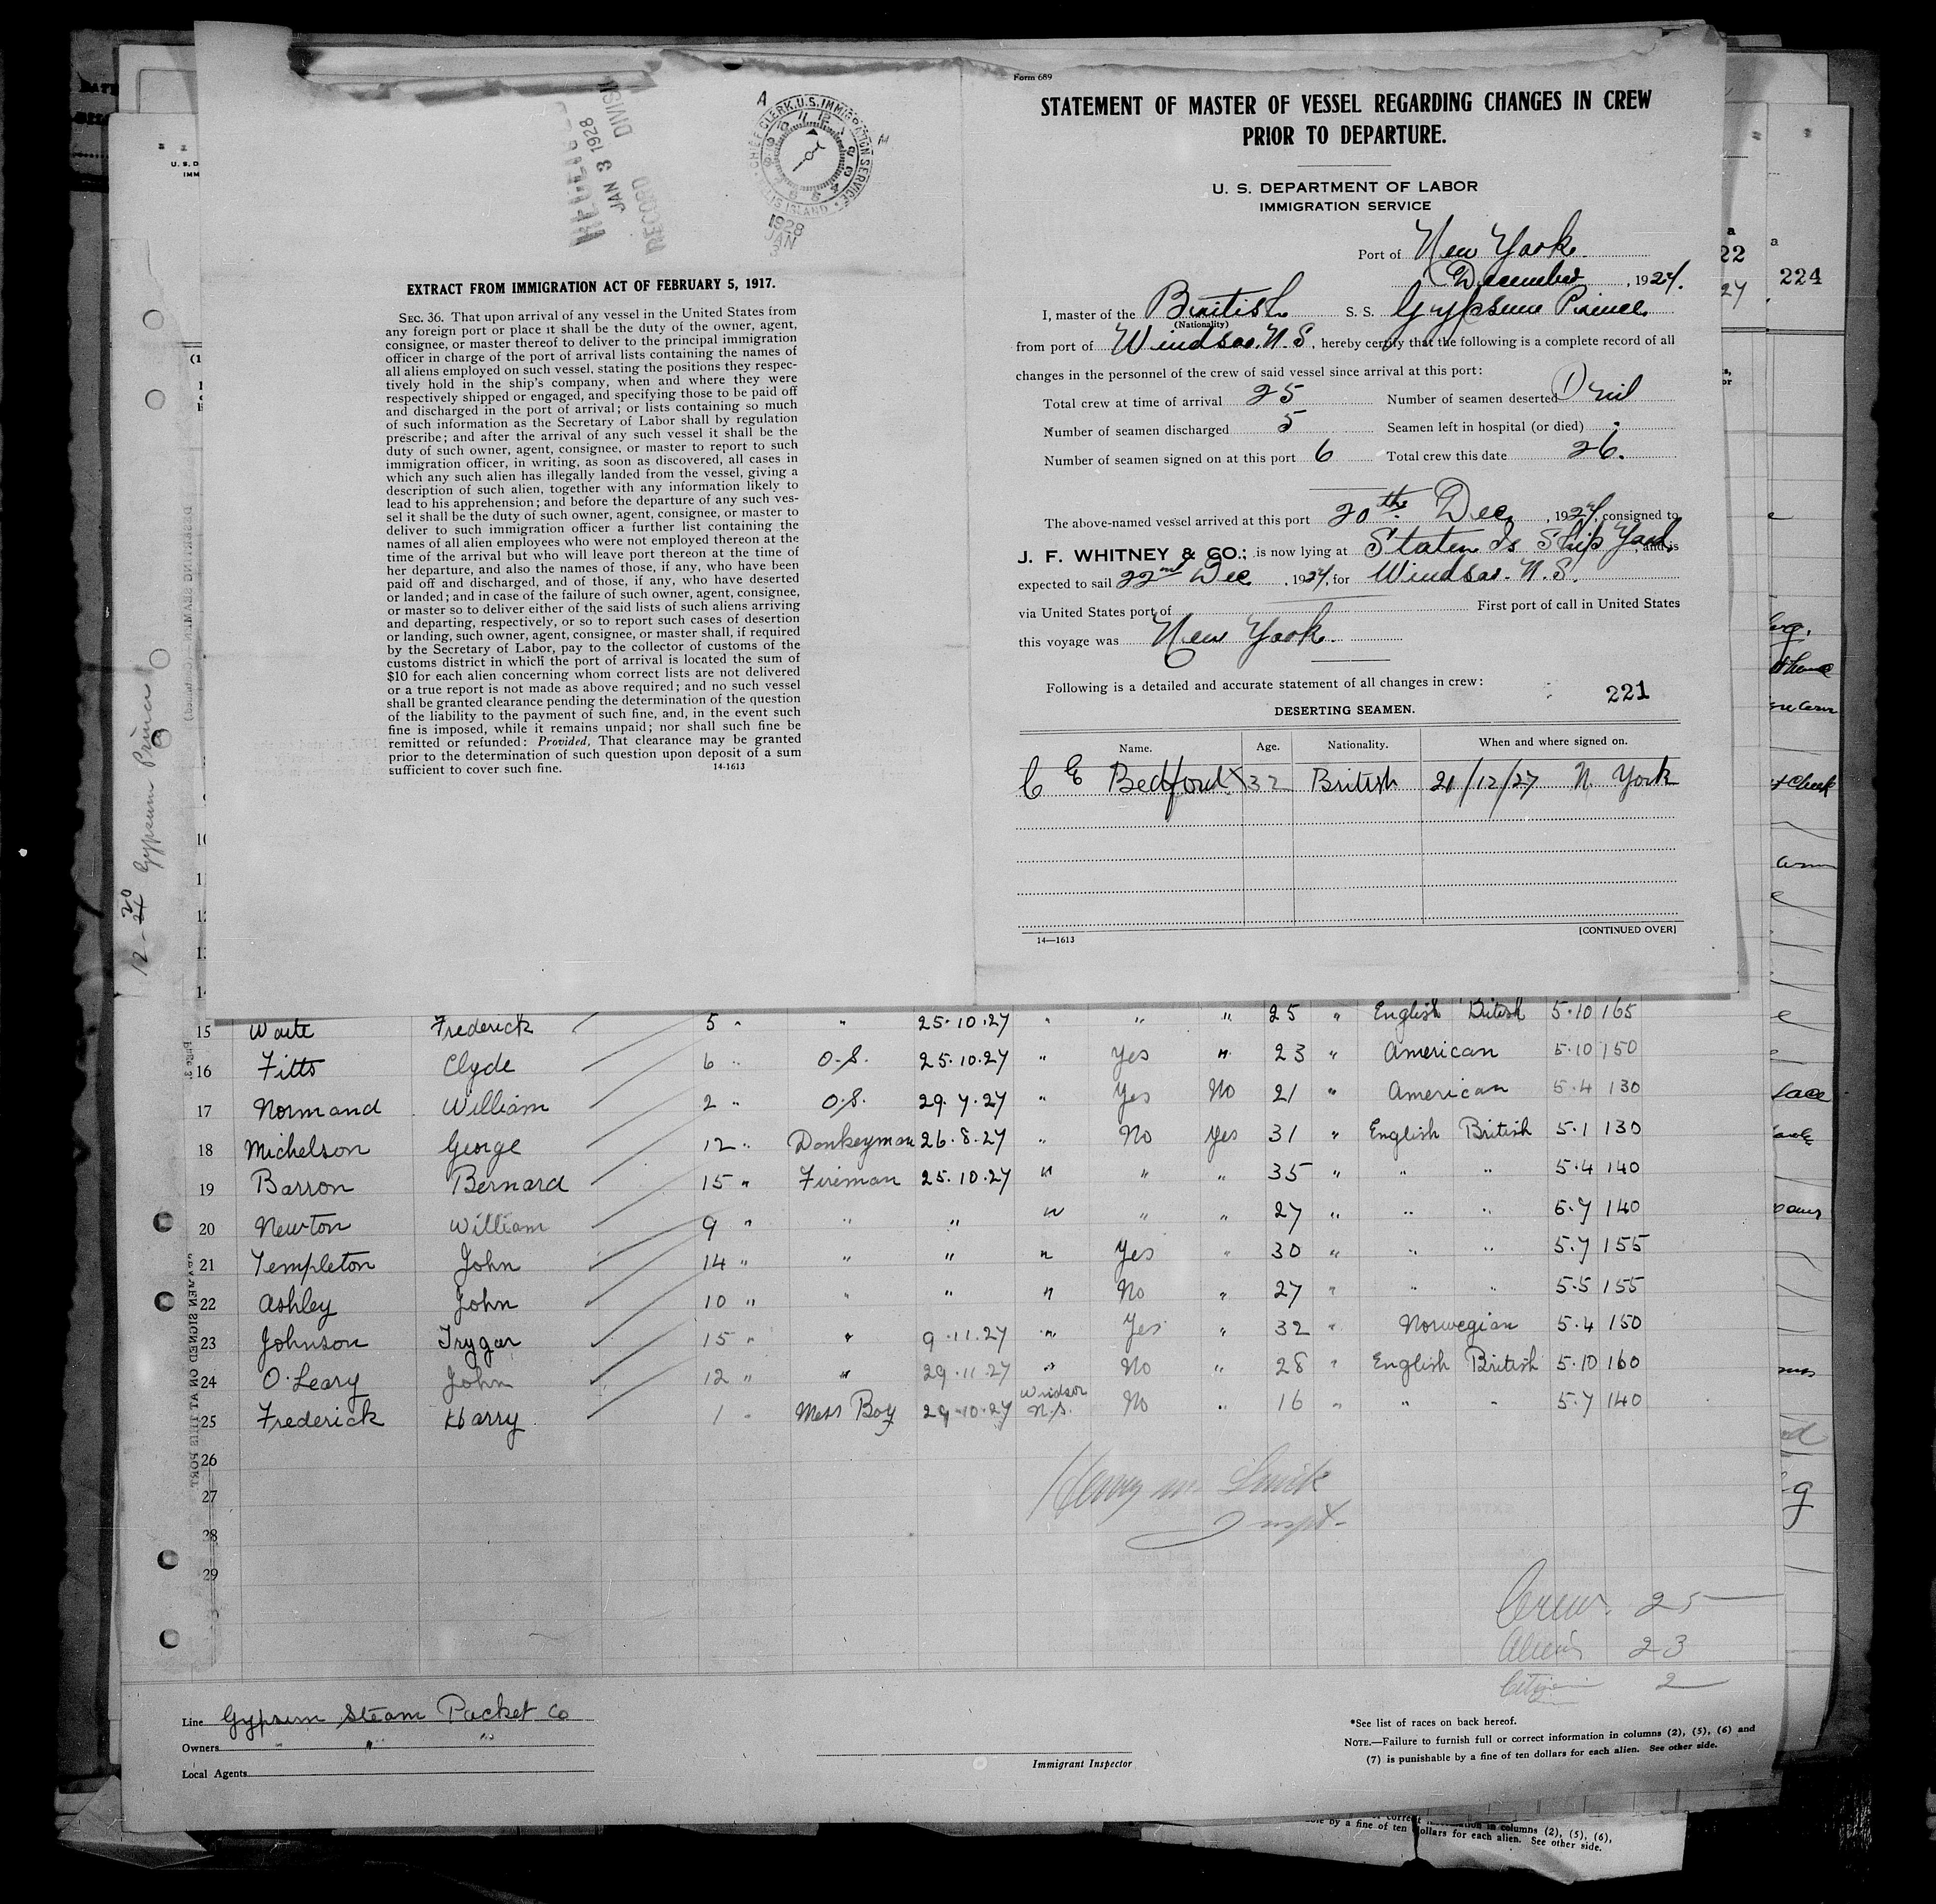 RECEIVED
JAN 3 1928
RECORD DIVISI
A
CHIEF CLERK, U.S. IMMIGRATION SERVICE
ELLIS ISLAND
1928
JAN
3
EXTRACT FROM IMMIGRATION ACT OF FEBRUARY 5, 1917.
SEC. 36. That upon arrival of any vessel in the United States from
any foreign port or place it shall be the duty of the owner, agent,
consignee, or master thereof to deliver to the principal immigration
officer in charge of the port of arrival lists containing the names of
all aliens employed on such vessel, stating the positions they respec-
tively hold in the ship's company, when and where they were
respectively shipped or engaged, and specifying those to be paid off
and discharged in the port of arrival; or lists containing so much
of such information as the Secretary of Labor shall by regulation
prescribe; and after the arrival of any such vessel it shall be the
duty of such owner, agent, consignee, or master to report to such
immigration officer, in writing, as soon as discovered, all cases in
which any such alien has illegally landed from the vessel, giving a
description of such alien, together with any information likely to
lead to his apprehension; and before the departure of any such ves-
sel it shall be the duty of such owner, agent, consignee, or master to
deliver to such immigration officer a further list containing the
names of all alien employees who were not employed thereon at the
time of the arrival but who will leave port thereon at the time of
her departure, and also the names of those, if any, who have been
paid off and discharged, and of those, if any, who have deserted
or landed; and in case of the failure of such owner, agent, consignee,
or master so to deliver either of the said lists of such aliens arriving
and departing, respectively, or so to report such cases of desertion
or landing, such owner, agent, consignee, or master shall, if required
by the Secretary of Labor, pay to the collector of customs of the
customs district in which the port of arrival is located the sum of
$10 for each alien concerning whom correct lists are not delivered
or a true report is not made as above required; and no such vessel
shall be granted clearance pending the determination of the question
of the liability to the payment of such fine, and, in the event such
fine is imposed, while it remains unpaid; nor shall such fine be
remitted or refunded: Provided, That clearance may be granted
prior to the determination of such question upon deposit of a sum
sufficient to cover such fine. 14-1613
Form 689
STATEMENT OF MASTER OF VESSEL REGARDING CHANGES IN CREW
PRIOR TO DEPARTURE.
U. S. DEPARTMENT OF LABOR
IMMIGRATION SERVICE
Port of New York
December, 1927.
I, master of the British S. S. Gypsum Prince
(Nationality)
from port of Windsor. N.S., hereby certify that the following is a complete record of all
changes in the personnel of the crew of said vessel since arrival at this port:
Total crew at time of arrival 25 Number of seamen deserted 1 nil
Number of seamen discharged 5 Seamen left in hospital (or died)
Number of seamen signed on at this port 6 Total crew this date 26.
The above-named vessel arrived at this port 20th Dec, 1927, consigned to
J. F. WHITNEY & CO.; is now lying at Staten Is Ship Yard, and is
expected to sail 22nd Dec, 1927, for Windsor. N.S.
via United States port of First port of call in United States
this voyage was New York.
Following is a detailed and accurate statement of all changes in crew:
221
DESERTING SEAMEN.
Name. Age. Nationality. When and where signed on.
C E Bedford X 32 British 21/12/27 N. York
14—1613 [CONTINUED OVER]
22
27
224
12-20 Gypsum Prince
15 Waite Frederick 5 " " 25.10.27 " " " 25 " English British 5.10 165
16 Fitts Clyde 6 " O.S. 25.10.27 " Yes " 23 " American 5.10 150
17 Normand William 2 " O.S. 29.7.27 " Yes No 21 " American 5.4 130
18 Michelson George 12 " Donkeyman 26.8.27 " No Yes 31 " English British 5.1 130
19 Barron Bernard 15 " Fireman 25.10.27 " " " 35 " " " 5.4 140
20 Newton William 9 " " " " " " 27 " " " 5.7 140
21 Templeton John 14 " " " " Yes " 30 " " " 5.7 155
22 Ashley John 10 " " " " No " 27 " " " 5.5 155
23 Johnson Trygar 15 " " 9.11.27 " Yes " 32 " Norwegian 5.4 150
24 O'Leary John 12 " " 29.11.27 " No " 28 " English British 5.10 160
25 Frederick Harry 1 " Mess Boy 29.10.27 Windsor N.S. No " 16 " " " 5.7 140
26
27
28
29
Inspt.
Crew. 25
Aliens 23
Citizen 2
Line Gypsum Steam Packet Co
Owners " " "
Local Agents
Immigrant Inspector
*See list of races on back hereof.
NOTE.—Failure to furnish full or correct information in columns (2), (5), (6) and
(7) is punishable by a fine of ten dollars for each alien. See other side.
information in columns (2), (5), (6),
by a fine of ten dollars for each alien. See other side.